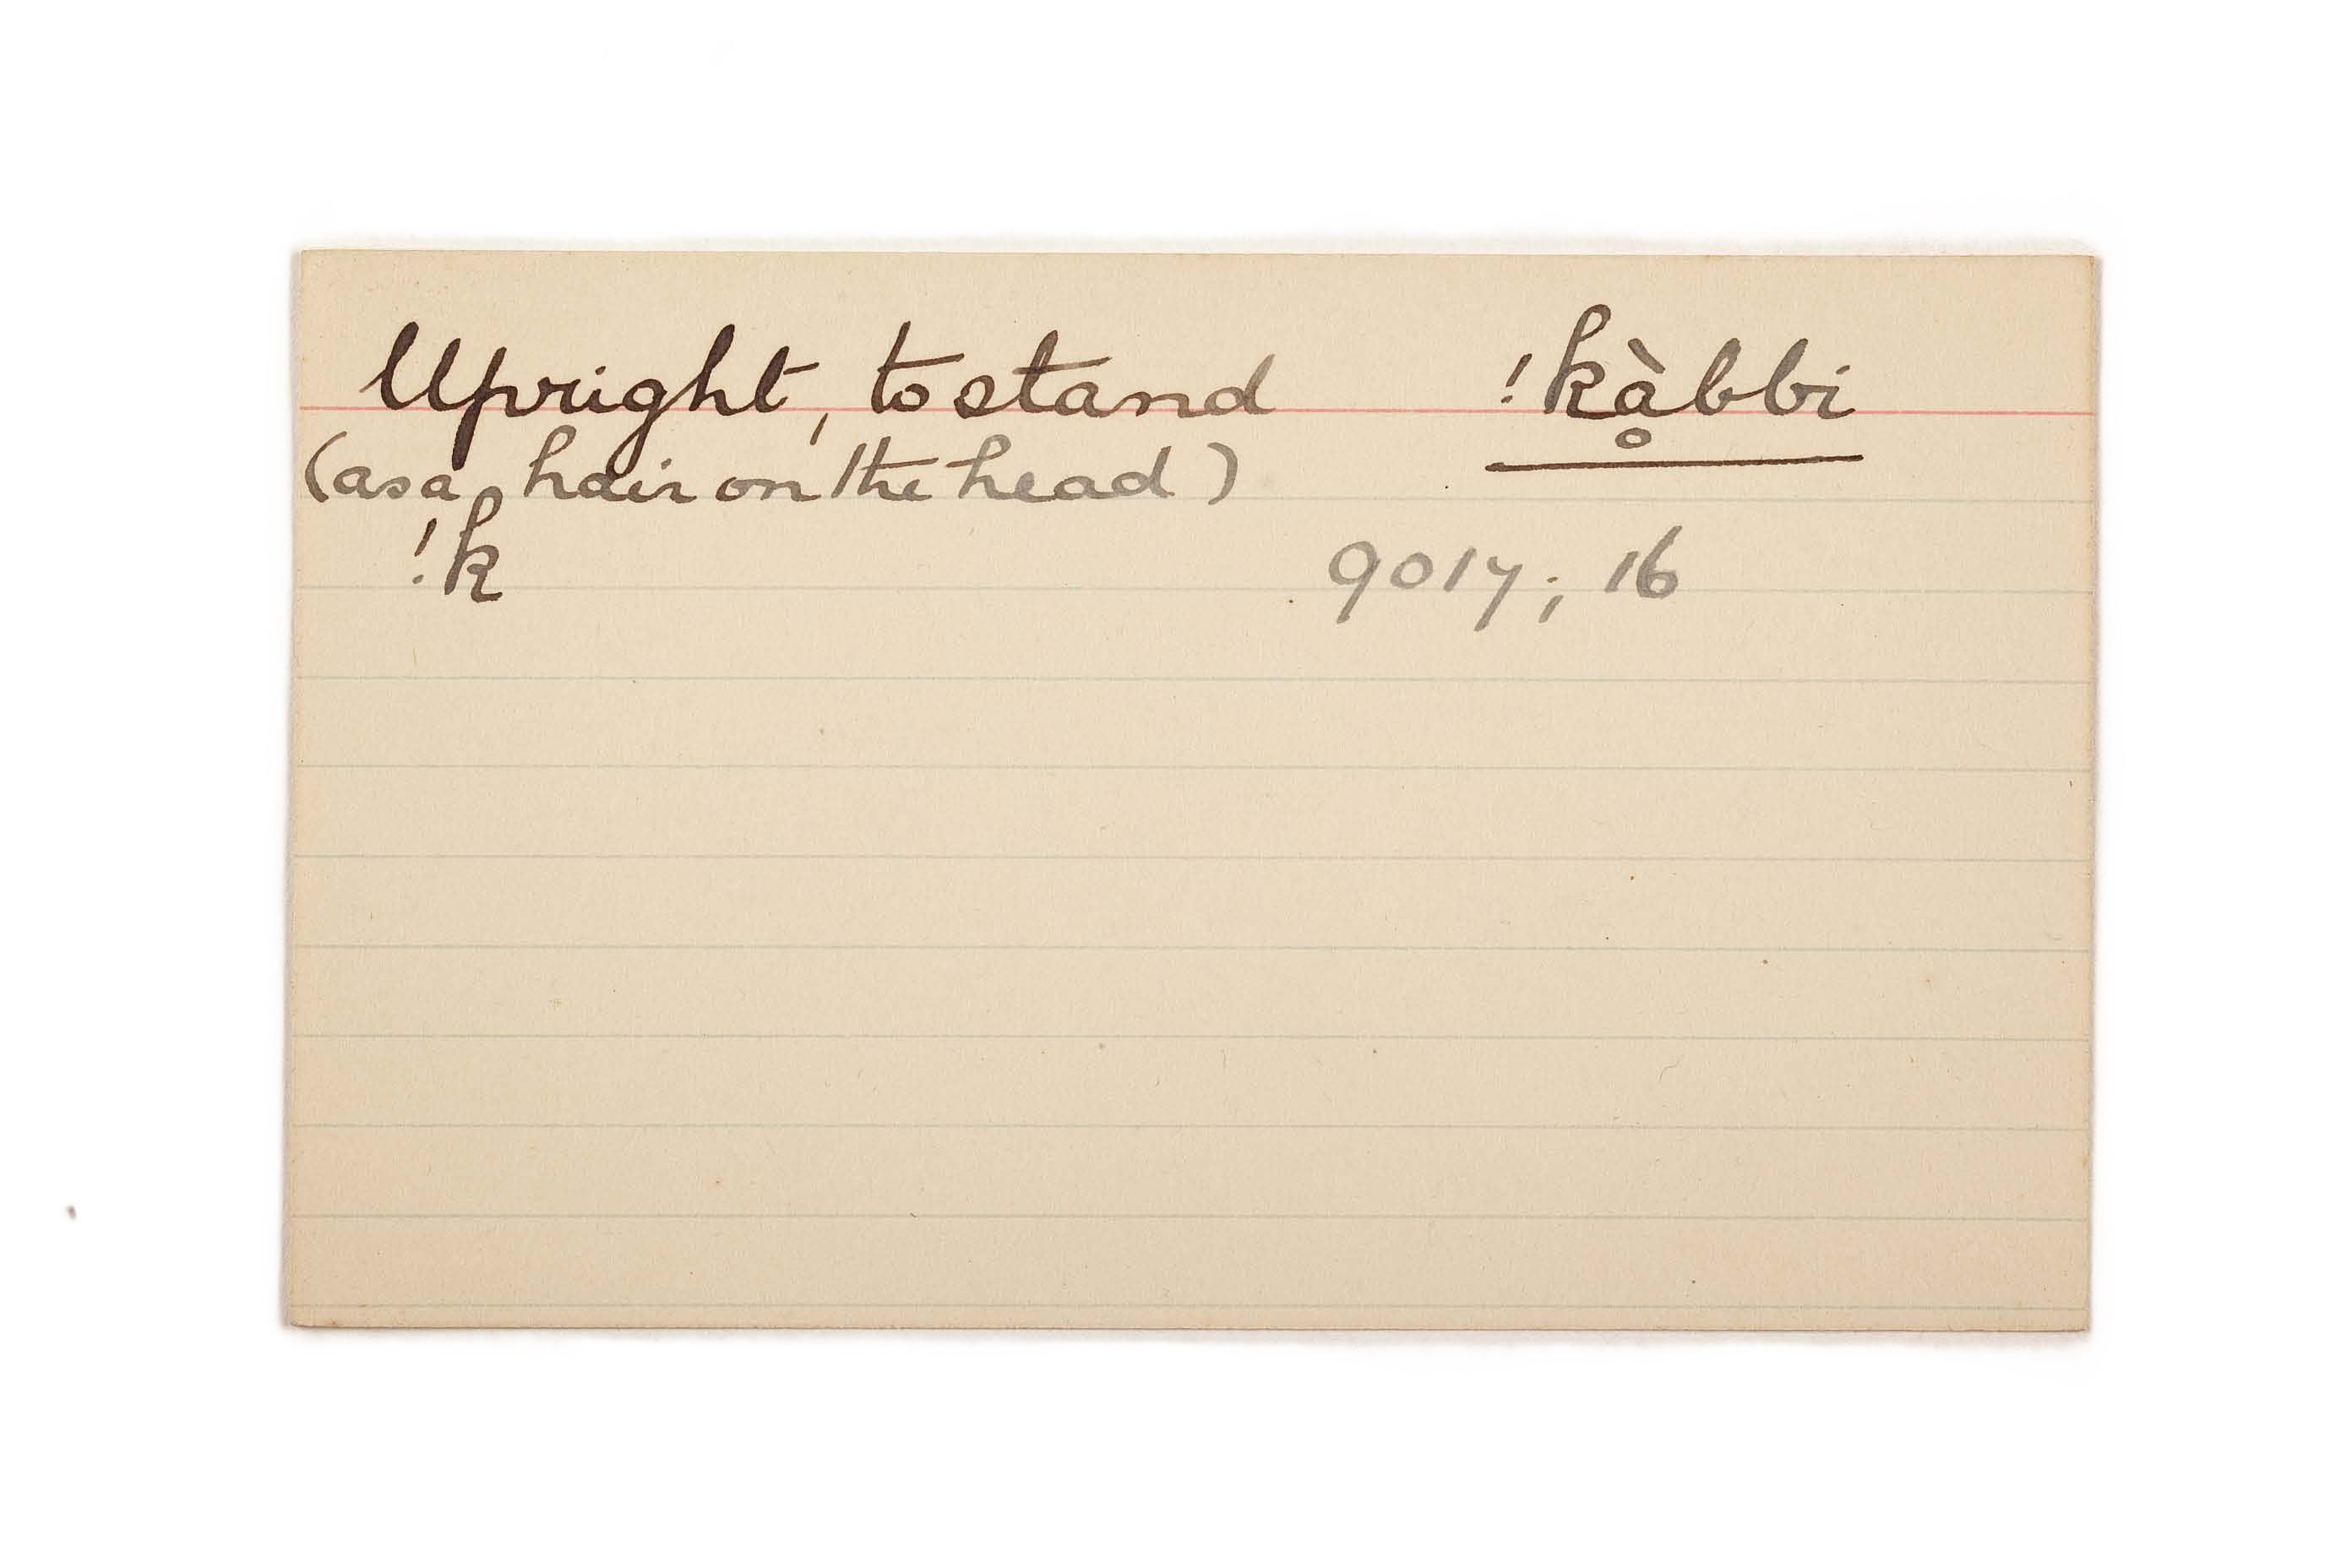 Upright, to stand !kḁ̀bbi
(as a hair on the head)
!k 9017; 16